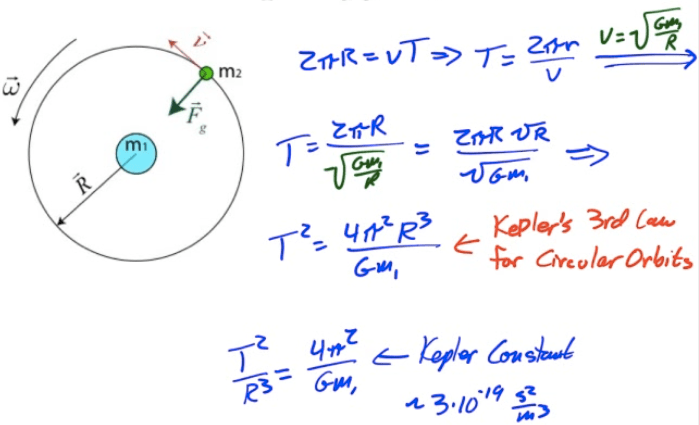 2πR = vT ⇒ T = 2πr/v  v = √(Gm₁/R) →
ω⃗ v⃗ m₂ F⃗g m₁ R⃗
T = 2πR/√(Gm₁/R) = 2πR√R/√Gm₁ ⇒
T² = 4π²R³/Gm₁ ← Kepler's 3rd Law
for Circular Orbits
T²/R³ = 4π²/Gm₁ ← Kepler Constant
~ 3·10⁻¹⁹ s²/m³